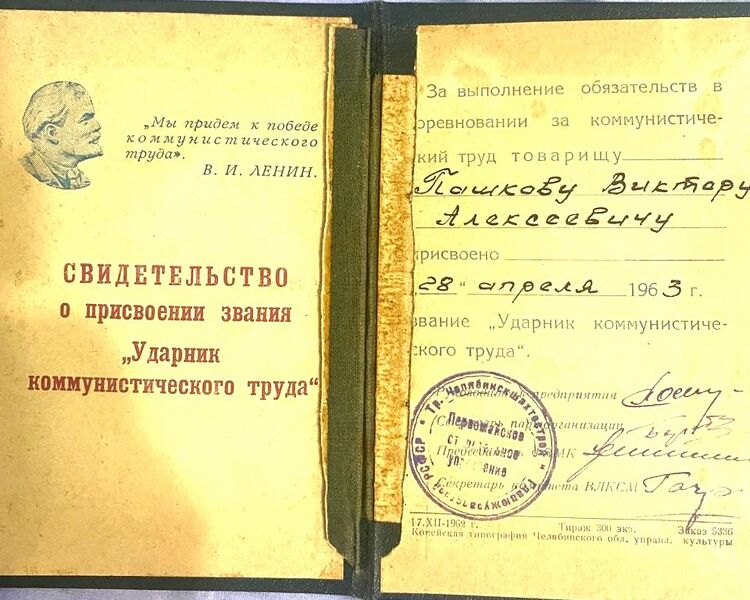 „Мы придем к победе
коммунистического
труда».
В. И. ЛЕНИН.
СВИДЕТЕЛЬСТВО
о присвоении звания
„Ударник
коммунистического труда“
За выполнение обязательств в
оревновании за коммунистиче-
кий труд товарищу
Пашкову Виктору
Алексеевичу
присвоено
„28“ апреля 1963 г.
звание „Ударник коммунистиче-
ского труда“.
предприятия
парторганизации
Председатель МК
Секретарь комитета ВЛКСМ
РСФСР • Тр. Челябинскшахтострой • Главюжуралстрой
Первомайское
строительное
управление
17.XII-1962 г. Тираж 300 экз. Заказ 5336
Копейская типография Челябинского обл. управл. культуры